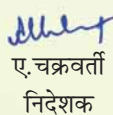 ए.चक्रवर्ती
निदेशक